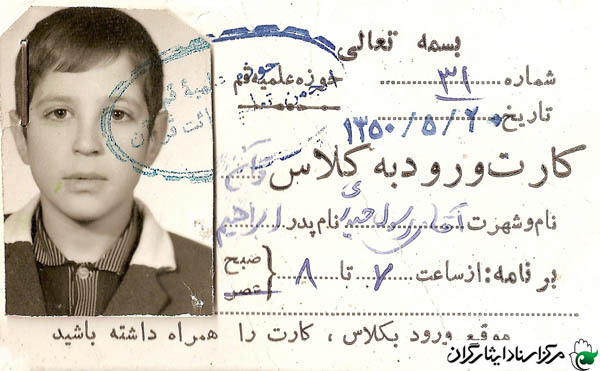 بسمه تعالی
حوزه علمیه قم
شماره ۳۱
تاریخ ۱۳۵۰/۵/۲۰
کارت ورود به کلاس قرآن
نام و شهرت آقای رسول حیدری نام پدر ابراهیم
برنامه: از ساعت ۷ تا ۸ صبح
عصر
موقع ورود بکلاس ، کارت را همراه داشته باشید
مرکز اسناد ایثارگران